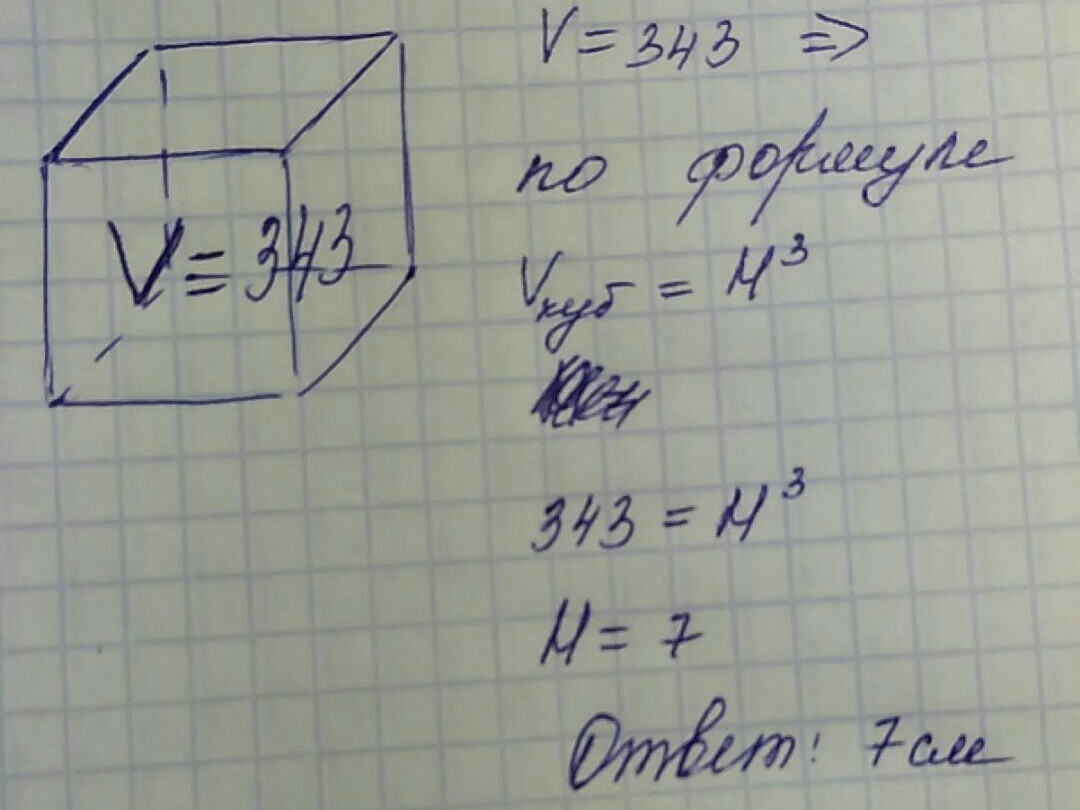 V = 343
V = 343 =>
по формуле
Vкуб = H³
343 = H³
H = 7
Ответ: 7см